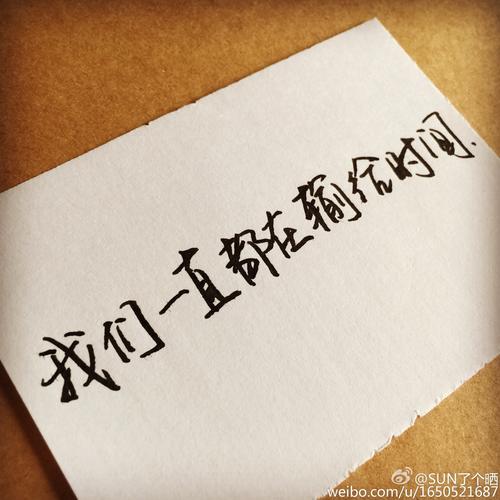 我们一直都在输给时间.
@SUN了个晒
weibo.com/u/1650521687